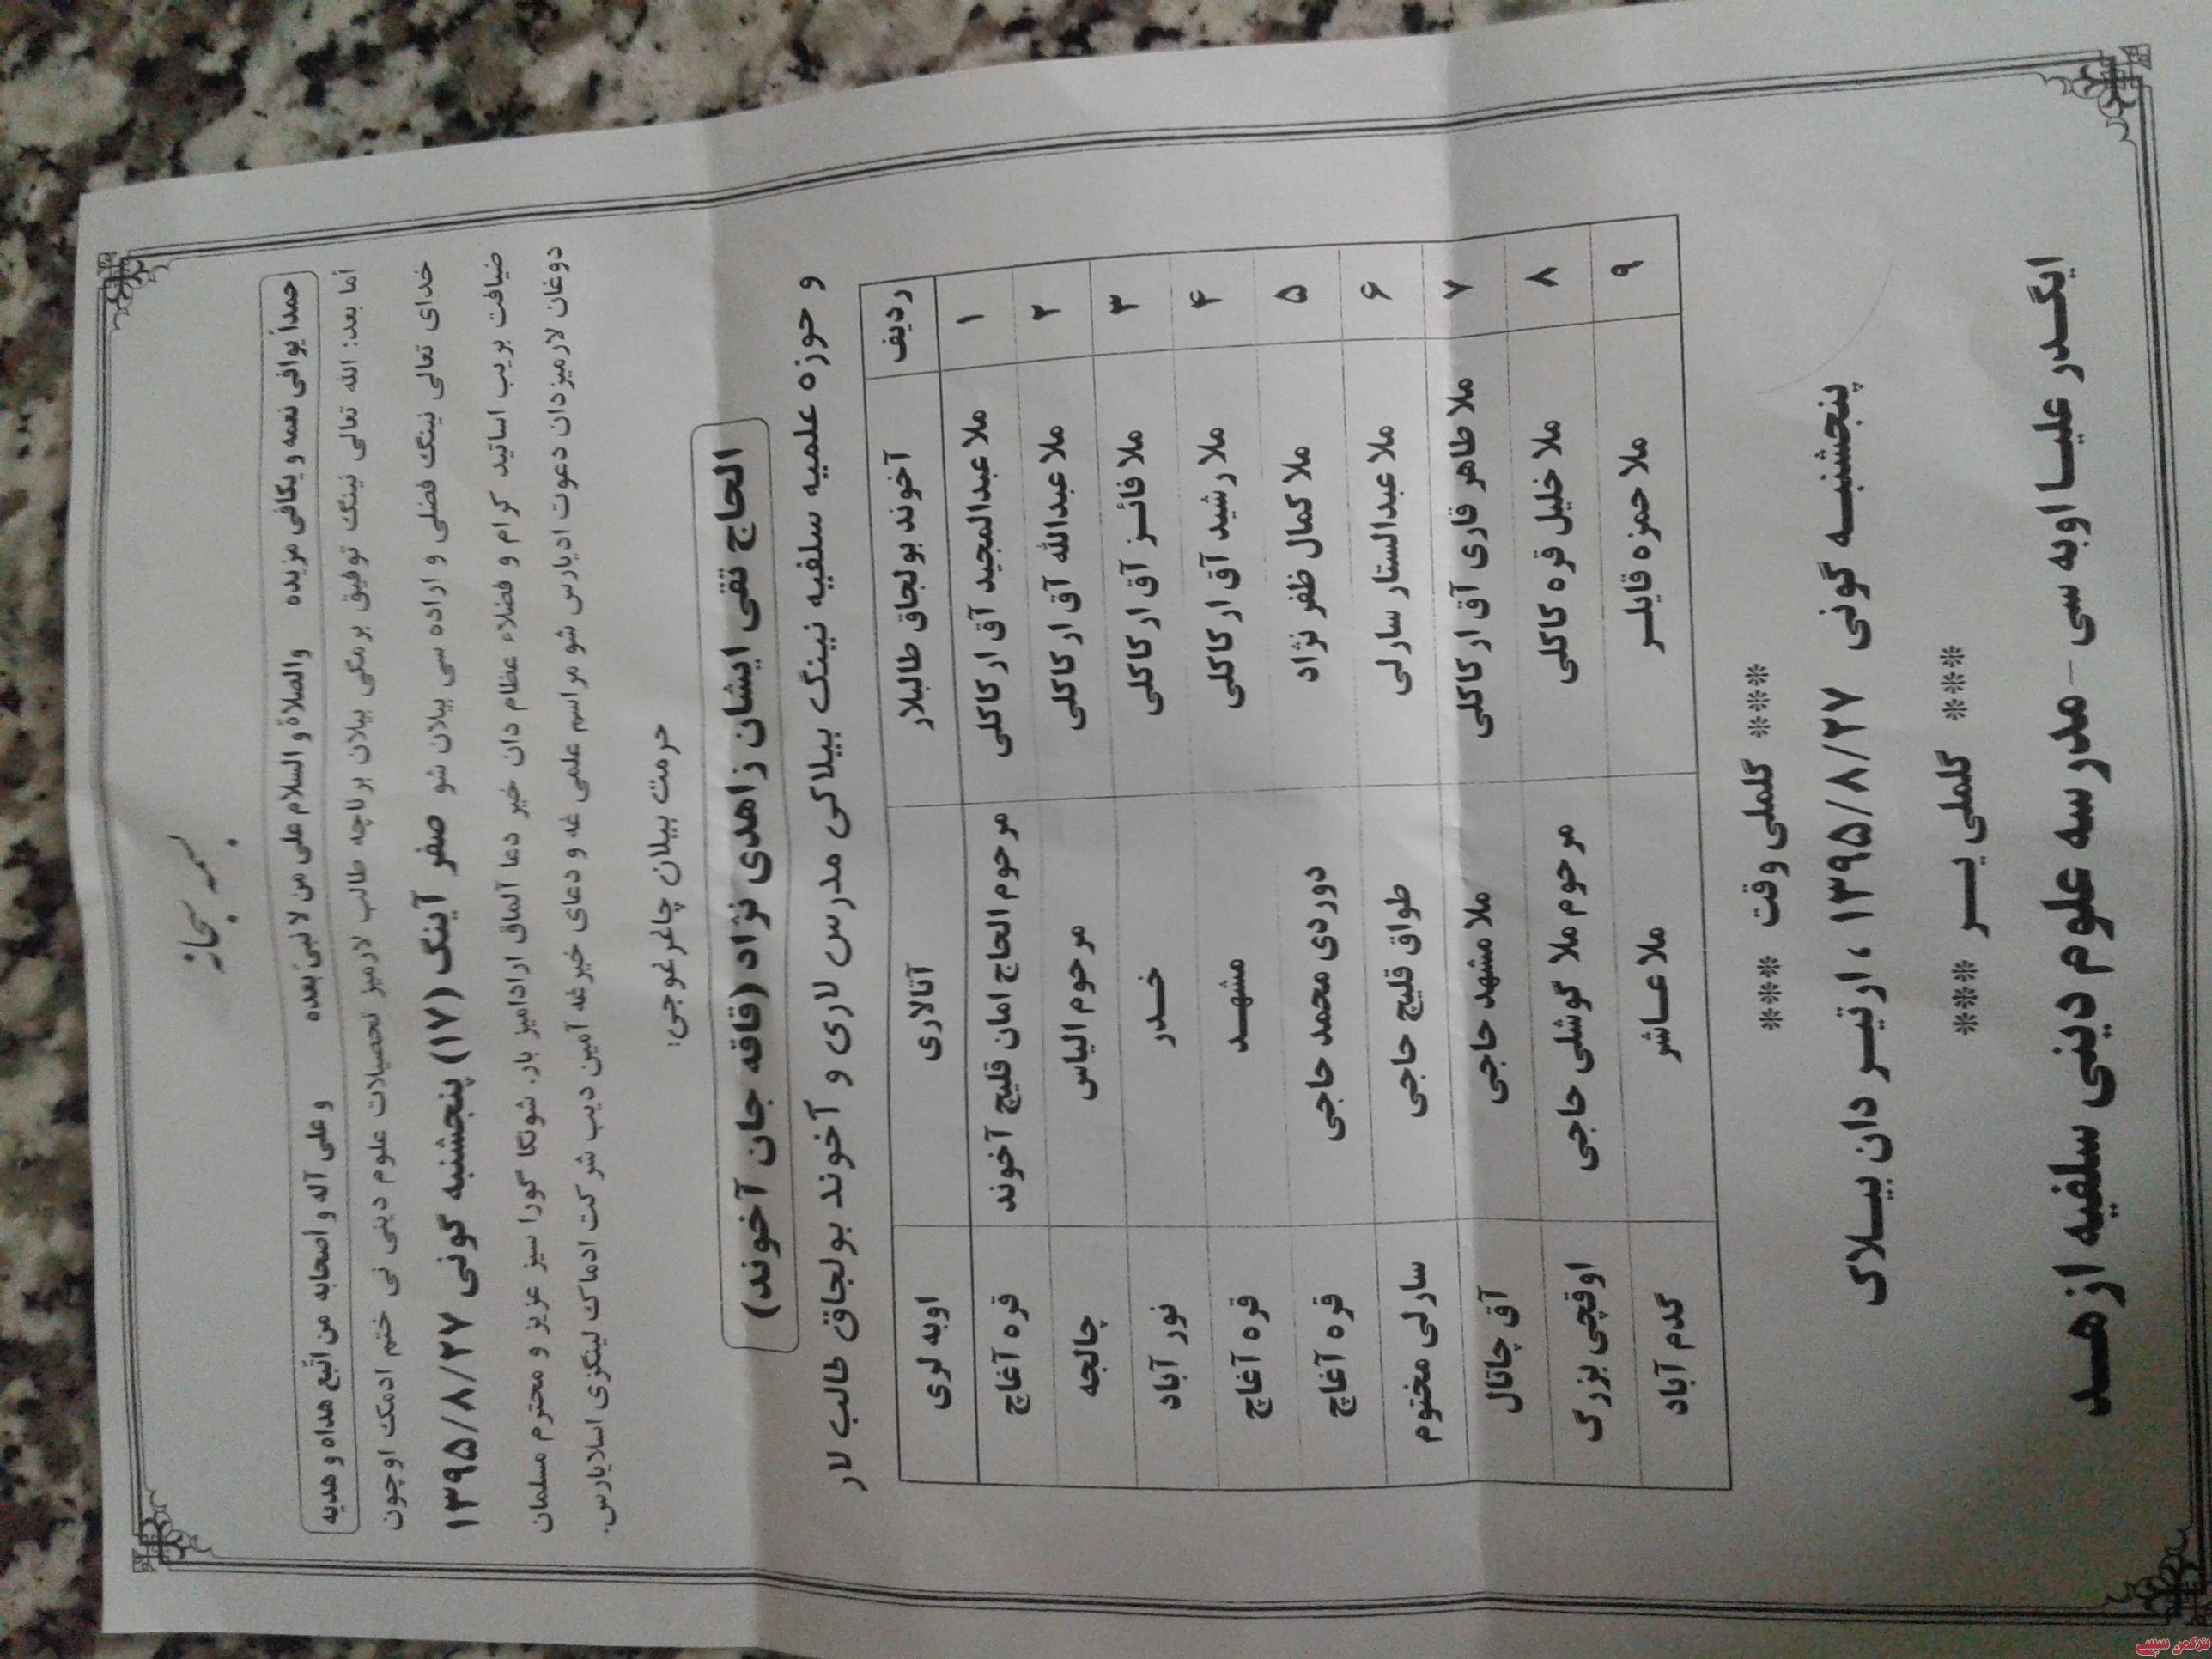 بسمه سبحانه
حمداً یوافی نعمه و یکافی مزیده والصلاة و السلام علی من لا نبیّ بَعده و علی آله و اصحابه من اتّبع هداه و هدیه
اما بعد: الله تعالی نینگ توفیق برمگی بیلان برناچه طالب لارمیز تحصیلات علوم دینی نی ختم ادمک اوچون
خدای تعالی نینگ فضلی و اراده سی بیلان شو صفر آینگ (۱۷) پنجشنبه گونی ۱۳۹۵/۸/۲۷
ضیافت بریب اساتید کرام و فضلاء عظام دان خیر دعا آلماق ارادامیز بار. شونگا گورا سیز عزیز و محترم مسلمان
دوغان لارمیزدان دعوت ادیارس شو مراسم علمی غه و دعای خیرغه آمین دیب شرکت ادماک لینگزی اسلایارس.
حرمت بیلان چاغرغوجی:
الحاج تقی ایشان زاهدی نژاد (قاقه جان آخوند)
و حوزه علمیه سلفیه نینگ بیلاکی مدرس لاری و آخوند بولجاق طالب لار
ردیف آخوند بولجاق طالبلار آتالاری اوبه لری
۱ ملا عبدالمجید آق ارکاکلی مرحوم الحاج امان قلیچ آخوند قره آغاچ
۲ ملا عبدالله آق ارکاکلی مرحوم الیاس چالجه
۳ ملا فائـز آق ارکاکلی خـدر نور آباد
۴ ملا رشید آق ارکاکلی مشهـد قره آغاچ
۵ ملا کمال ظفر نژاد دوردی محمد حاجی قره آغاچ
۶ ملا عبدالستار سارلی طواق قلیچ حاجی سارلی مختوم
۷ ملا طاهر قاری آق ارکاکلی ملا مشهد حاجی آق چاتال
۸ ملا خلیل قره کاکلی مرحوم ملا گوشلی حاجی اوقچی بزرگ
۹ ملا حمزه قایلـر ملا عـاشر کدم آباد
**** گلملی وقت ****
پنجشنبـه گونی ۱۳۹۵/۸/۲۷ ، ارتیـر دان بیـلاک
**** گلملی یـر ****
ایگـدر علیـا اوبه سی - مدرسه علوم دینی سلفیه ازهـد
ترکمن سسی